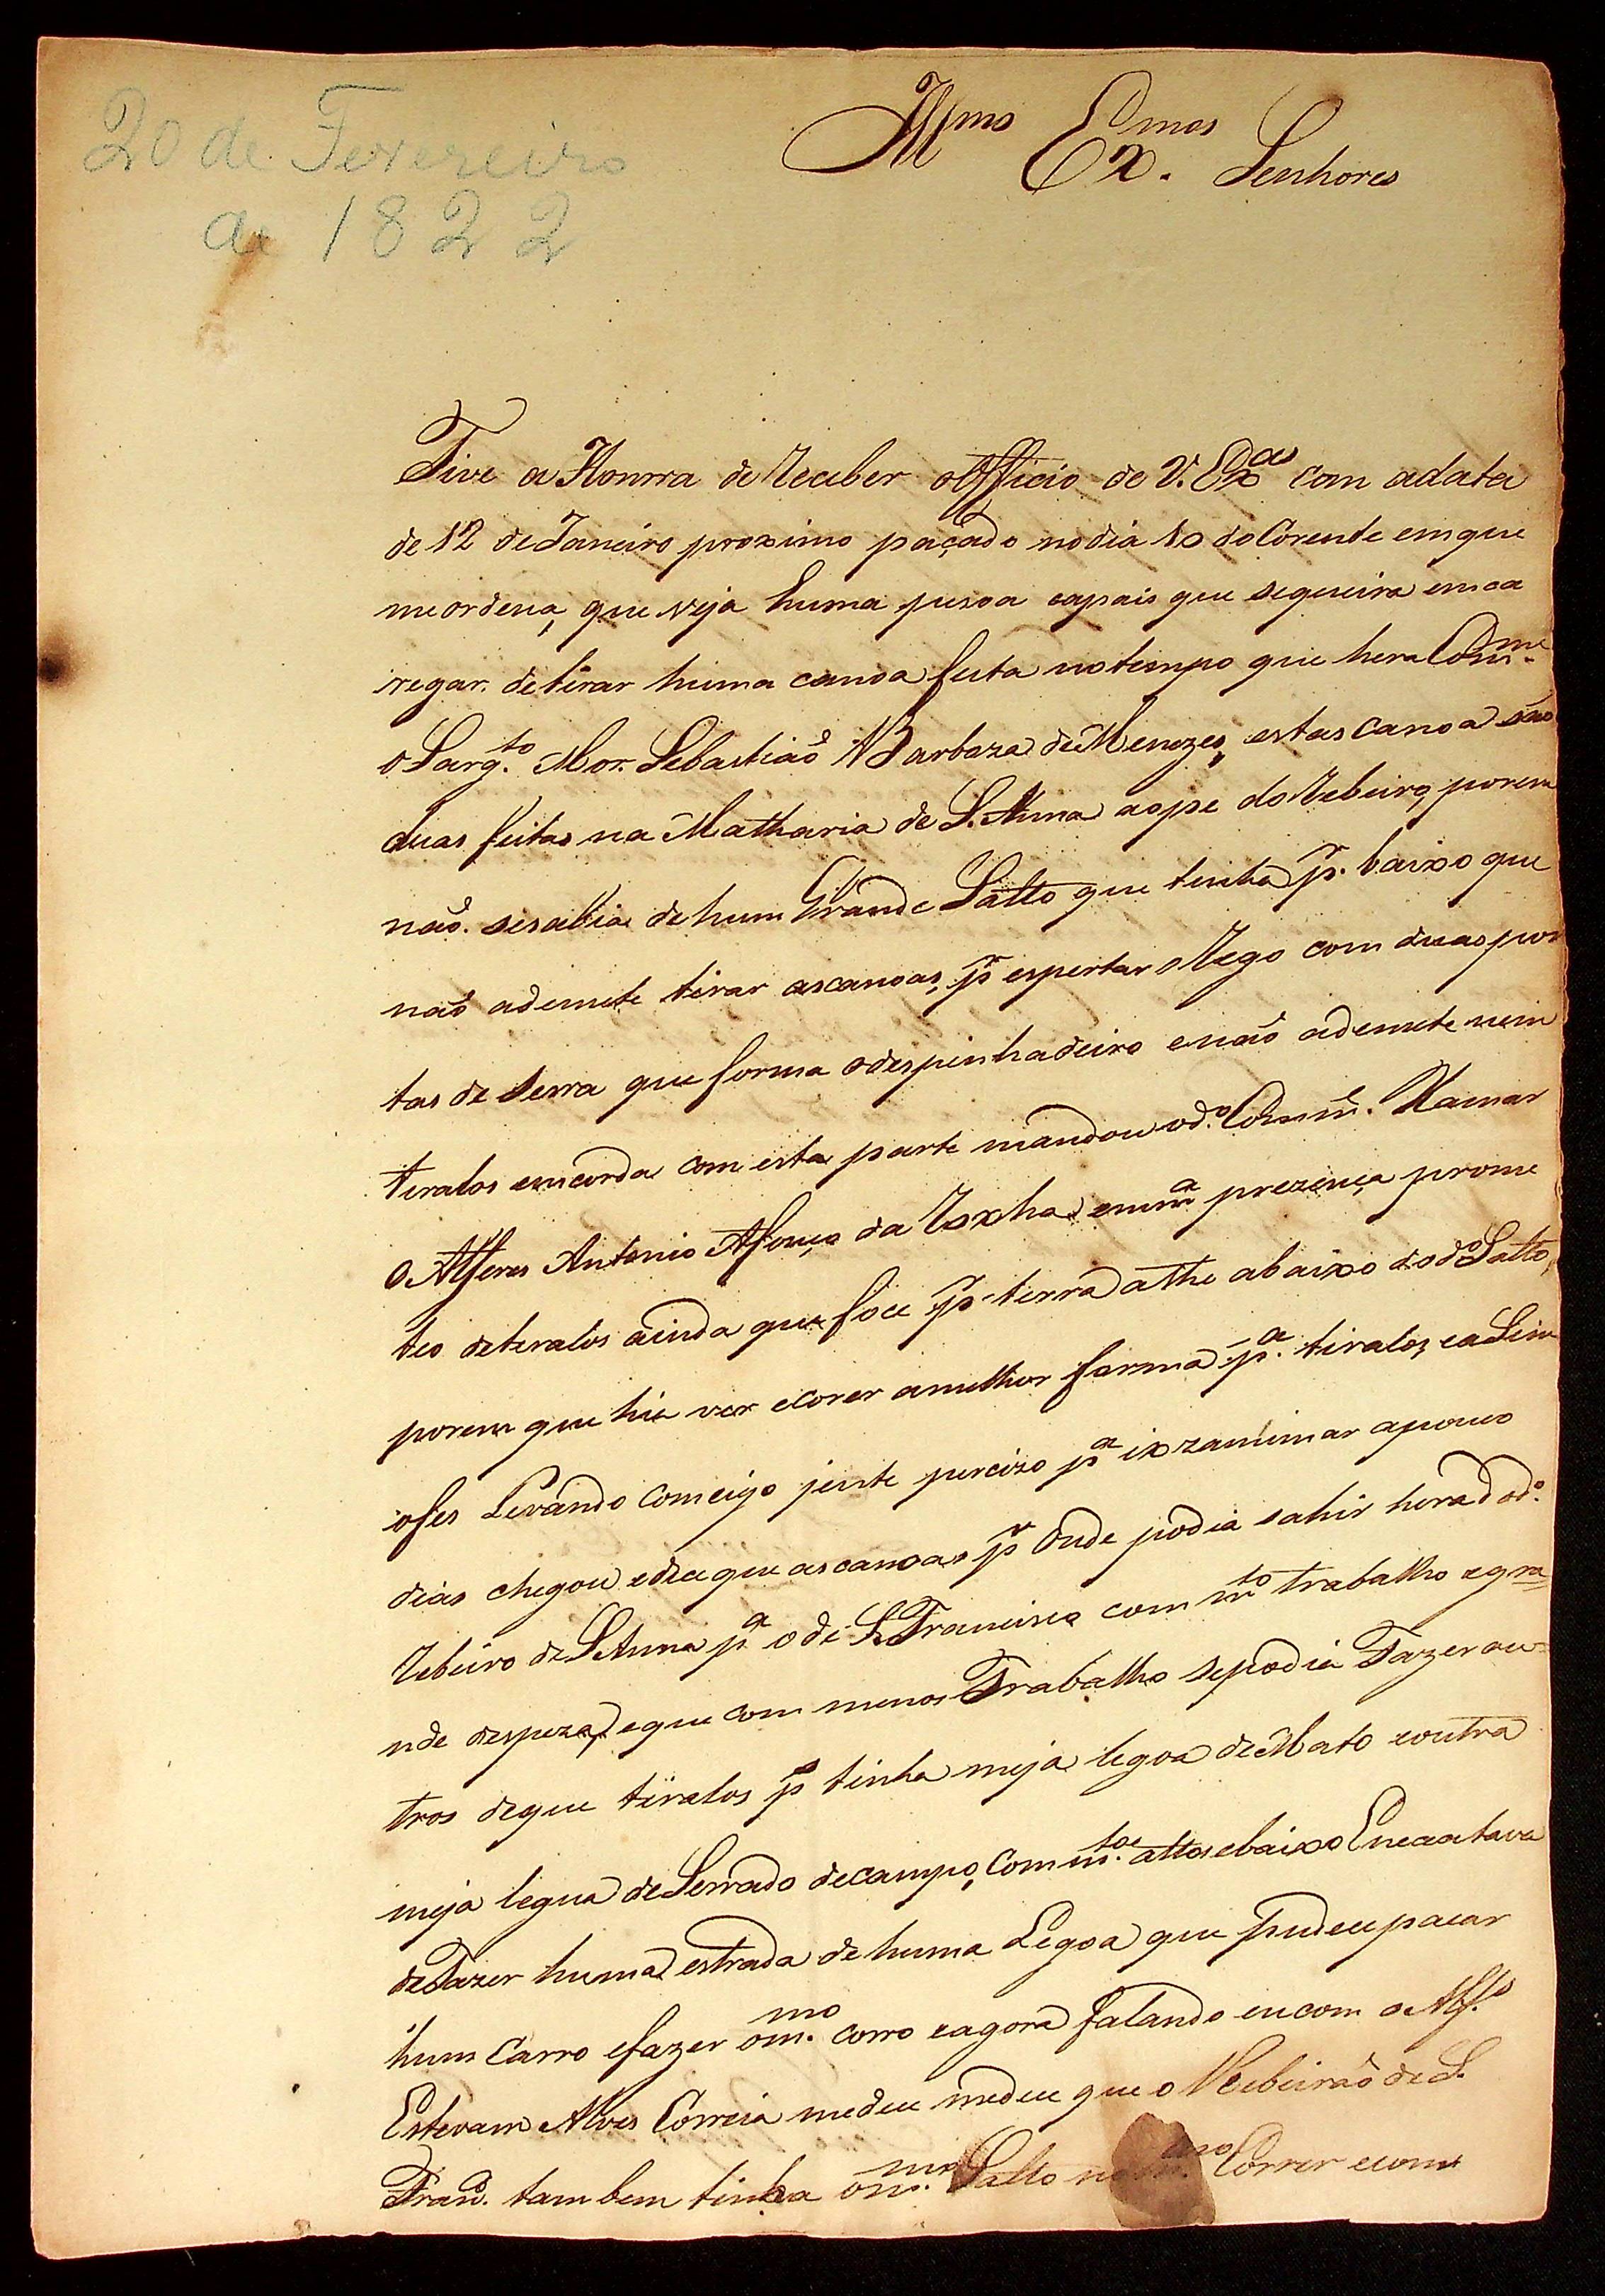 20 de Fevereiro
de 1822
Illmos Exmos Senhores
Tive a Honrra de Receber o Officio de V. Exas com adata
de 12 de Janeiro proximo paçado no dia 10 do Corente em que
me ordena, que veja huma pesoa capais que sequeira enca
regar de tirar huma canoa feita no tempo que hera Comme
o Sargto Mor Sebastiaõ Barboza de Menezes, estas canoa são
duas feitas na Matharia de S. Anna ao pe do Rebeiro, porem
naõ se sabia de hum Grande Salto que tinha pr baixo que
naõ ademete tirar as canoas, pr espertar o Rego com duas pon
tas de serra que forma o despinhadeiro e naõ ademete nem
tiralos em corda com esta parte mandou o do Comme Xamar
o Alferes Antonio Afonço da Roxha em ma prezença prome
teo de tiralos ainda que foce pr terra athe abaixo do do Salto,
porem que hia ver e corer a melhor forma pa tiralos, e a Sim
o fes Levando comcigo jente percizo pa ixzaminar a poucos
dias chegou e dice que as canoas pr Onde podia sahir hera do do
Rebeiro de S. Anna pa o de S. Francisco com mto trabalho e gra
nde despeza, e que com menos Trabalho se podia Fazer ou
tros de que tiralos p tinha meja legoa de Mato e outra
meja legua de Serrado de campo, com mtos altos e baixo E necacitava
de Fazer huma estrada de huma Legoa que pudece pacar
hum Carro e fazer o mmo carro e agora falando eu com o Alfs
Estevam Alves Correia me dice me dice que o Rebeiraõ de S.
Frano tambem tinha o mmo Salto no mmo Correr e com